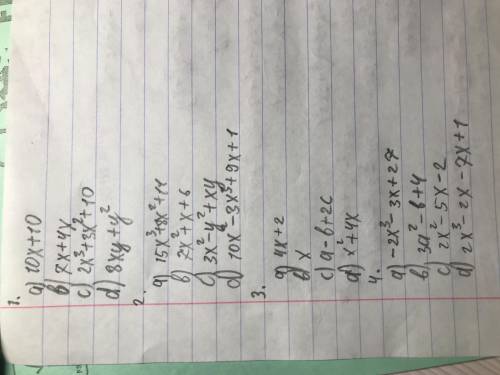 1.
a) 10x+10
b) 7x+4x
c) 2x³+3x²+10
d) 8xy+y²
2.
a) 15x³+8x²+11
b) 7x²+x+6
c) 3x²-y²+xy
d) 10x⁴-3x³+9x+1
3.
a) 4x+2
b) x
c) a-b+2c
d) x²+4x
4.
a) -2x²-3x+27
b) 3a²-b+4
c) 2x²-5x-2
d) 2x³-2x-7x+1